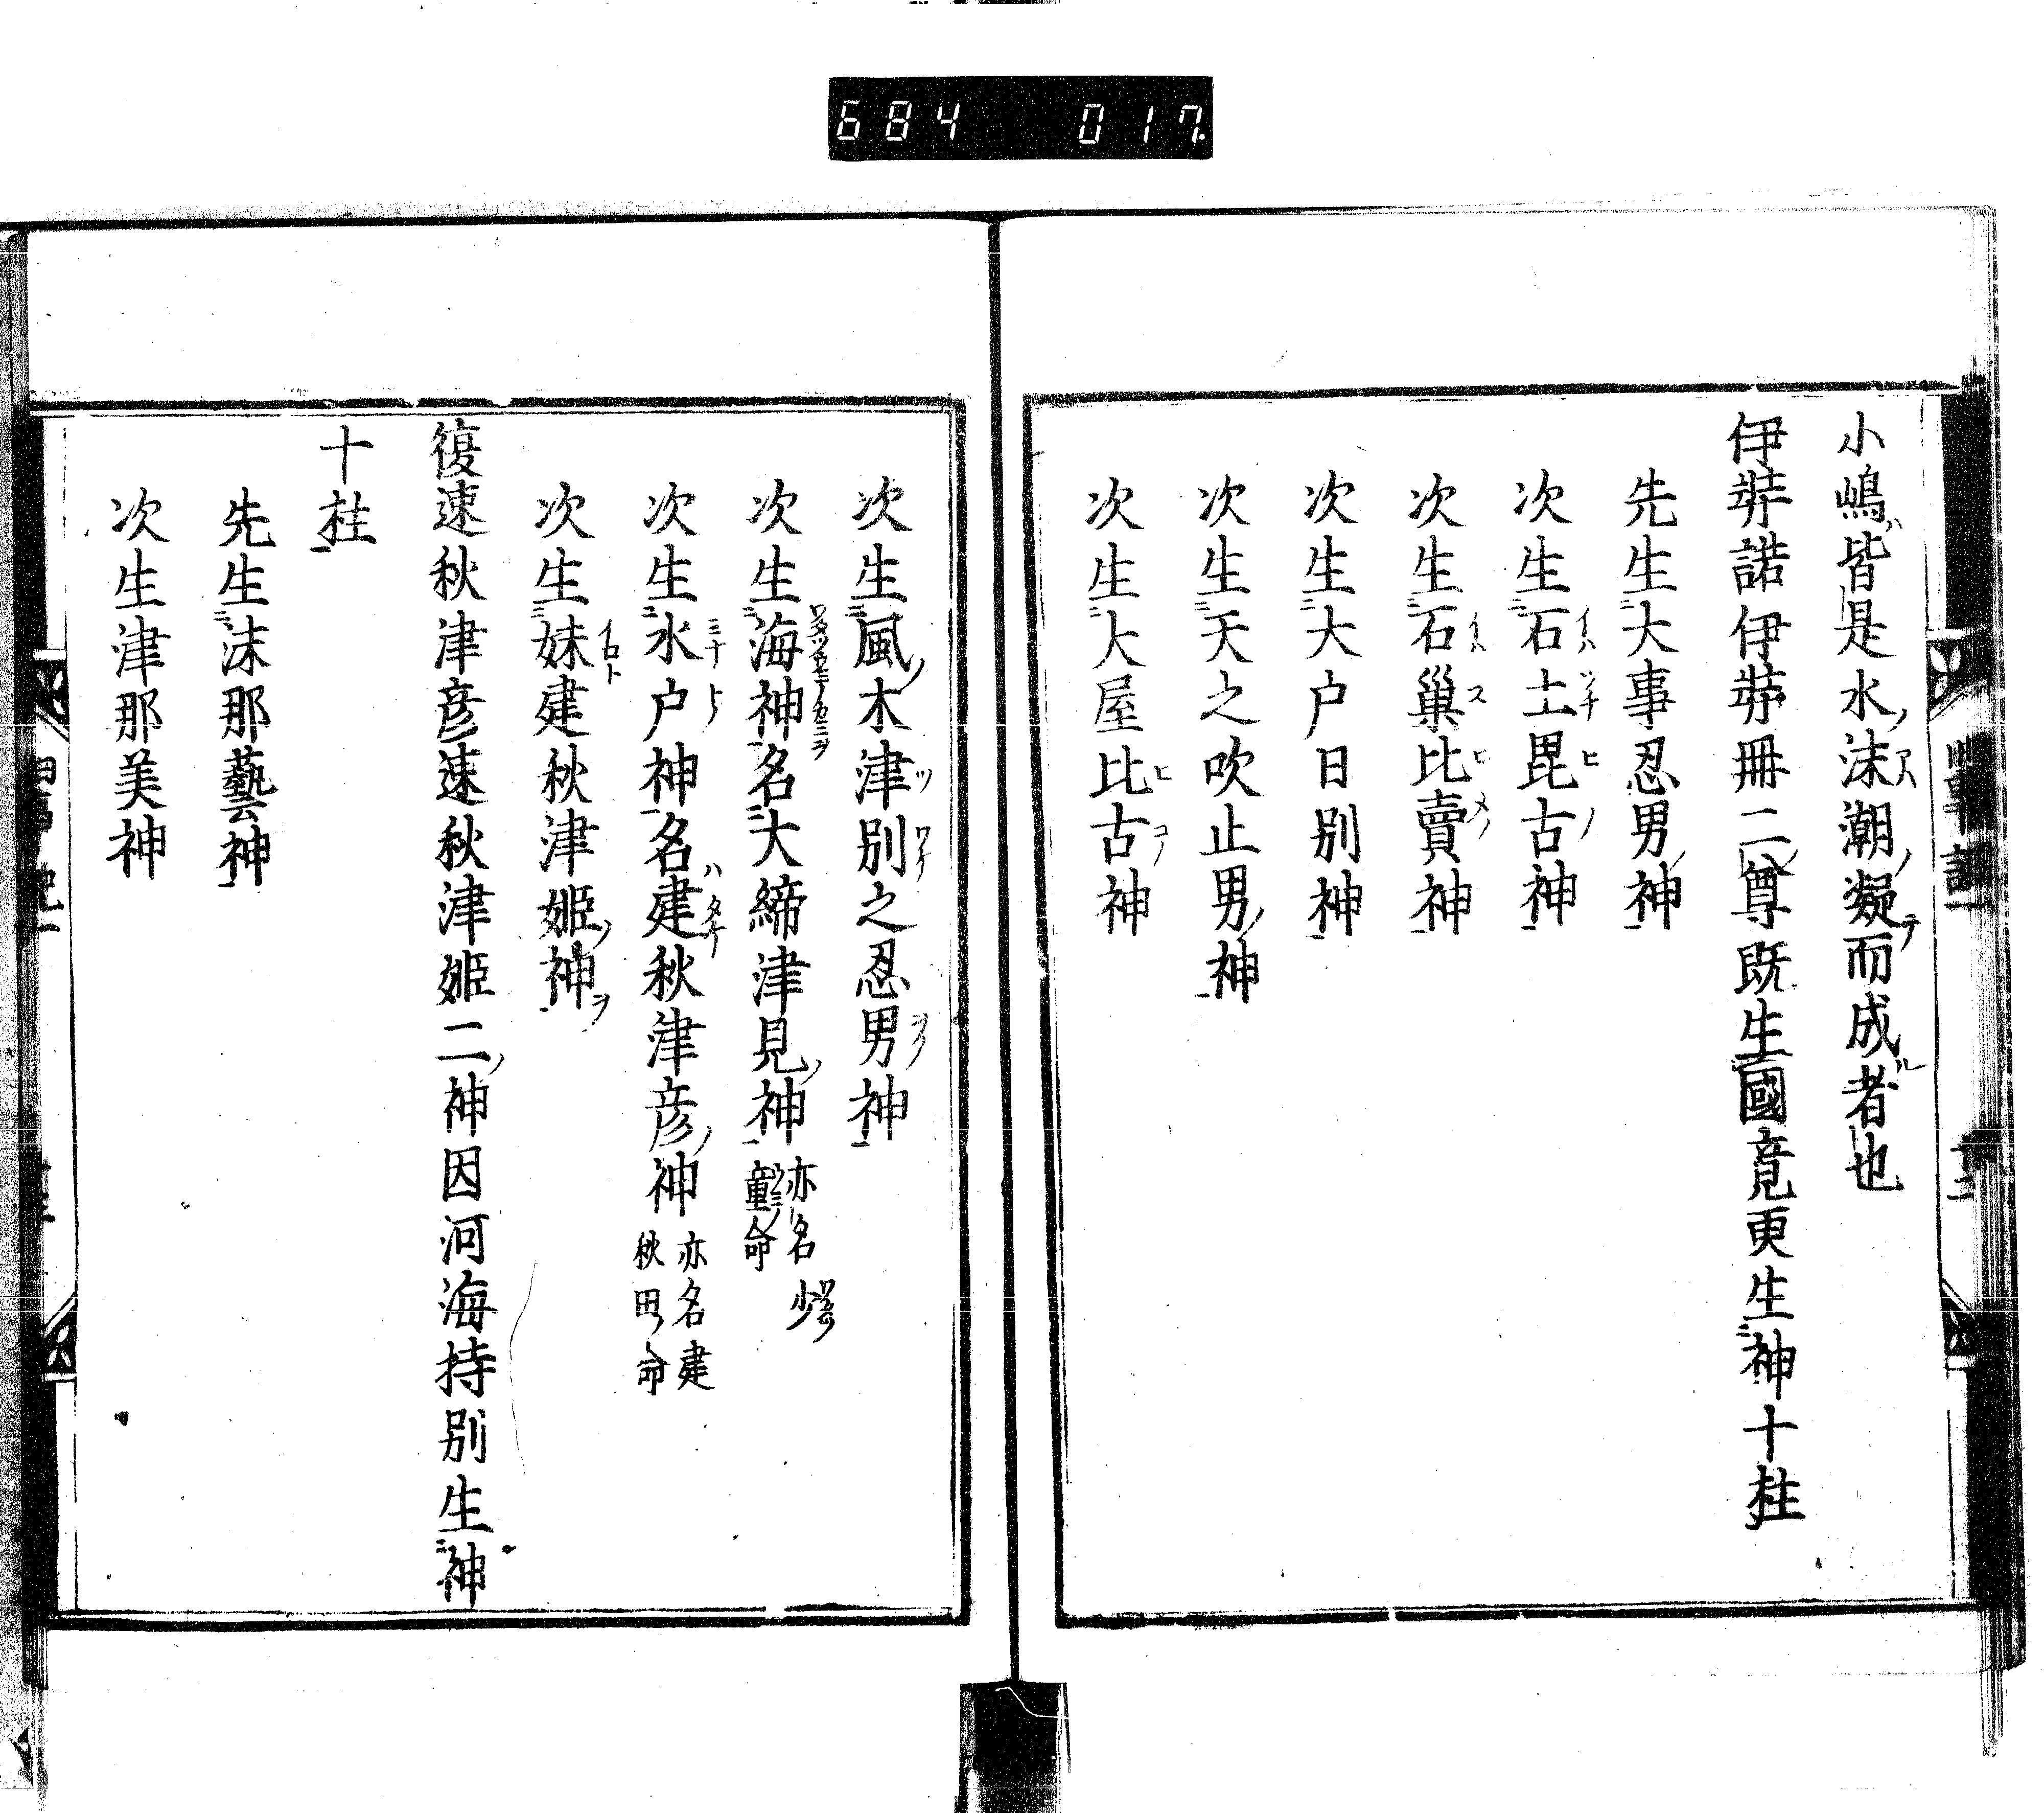 684 017
小嶋ハ皆是水ノ沫潮ノ凝テ而成ル者也
伊弉諾伊弉冊二ノ尊既生國竟更生神十柱
先生大事忍男ノ神
次生石土毘古神
次生石巢比賣神
次生大户日別神
次生天之吹止男ノ神
次生大屋比古神
次生風ノ木津別之忍男神
次生海神名大締津見ノ神 亦名少童命
次生水户神名ハ建秋津彦ノ神 亦名建秋田命
次生妹建秋津姫ノ神ヲ
復速秋津彦速秋津姫二ノ神因河海持別生神
十柱
先生沫那藝神
次生津那美神